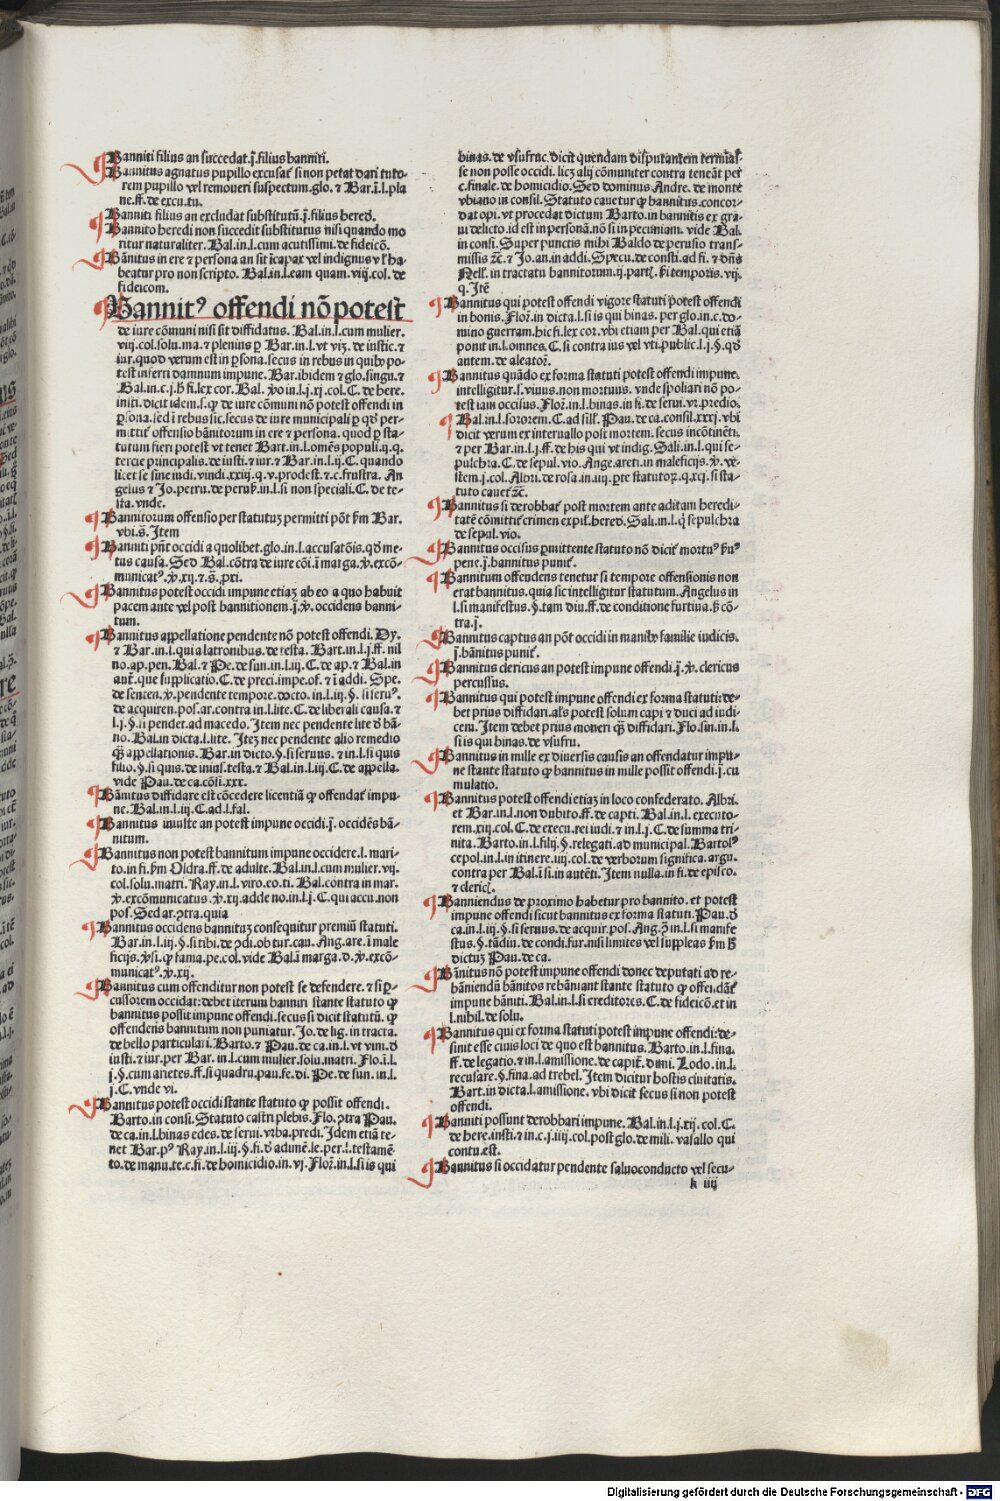 Banniti filius an succedat.j̄.filius banniti.
Bannitus agnatus pupillo excusat̉ si non petat dari tuto⸗
rem pupillo vel remoueri suspectum.glo. ⁊ Bar.ī.l.pla
ne.ff.de excu.tu.
Banniti filius an excludat substitutū.j̄.filius hered̉.
Bannito heredi non succedit substitutus nisi quando mo
ritur naturaliter. Bal.in.l.cum acutissimi.de fideicō.
Bānitus in ere ⁊ persona an sit īcapax vel indignus vl̓ ha⸗
beatur pro non scripto. Bal.in.l.eam quam.viij.col.de
fideicom.
Bannitꝰ offendi nō potest
de iure cōmuni nisi sit diffidatus. Bal.in.l.cum mulier.
viij.col.solu.ma.⁊ plenius ꝑ Bar.in.l.vt viz.de iustic.⁊
iur.quod verum est in ꝑsona.secus in rebus in quibꝰ po⸗
test inferri damnum impune. Bar.ibidem ⁊ glo.singu.⁊
Bal.in.c.j.h̄ fi.lex cor. Bal. v̊o in.l.j.xj.col.C.de here.
insti.dicit idem.s.ꝙ de iure cōmuni nō potest offendi in
ꝑsona.sed ī rebus sic.secus de iure municipali ꝑ qd̓ per⸗
mittit̉ offensio bānitorum in ere ⁊ persona.quod ꝑ sta⸗
tutum fieri potest vt tenet Bart.in.l.omēs populi.ij.q.
tercie principalis.de iusti.⁊ iur.⁊ Bar.in.l.ij.C.quando
licet se sine iudi.vindi.xxiij.q.v.prodest.⁊.c.frustra. An
gelus ⁊ Jo.petru.de peruꝭ.in.l.si non speciali.C.de te⸗
sta.vnde.
Bannitorum offensio per statutuꝫ permitti pōt ẜm Bar.
vbi.s̄. Item
Banniti pn̄t occidi a quolibet.glo.in.l.accusatōis.qd̓ me⸗
tus causa. Sed Bal.cōtra de iure cōi.ī marga.v̊.excō⸗
municatꝰ.v̊.xij.⁊.q̄.pxi.
Bannitus potest occidi impune etiaꝫ ab eo a quo habuit
pacem ante vel post bannitionem.j̄.v̊.occidens banni⸗
tum.
Bannitus appellatione pendente nō potest offendi. Dy.
⁊ Bar.in.l.qui a latronibus.de testa. Bart.in.l.j.ff.nil
no.ap.pen. Bal.⁊ Pe.de sun.in.l.iij.C.de ap.⁊ Bal.in
aut̄.que supplicatio.C.de preci.impe.of.⁊ ī addi. Spe.
de senten.v̊.pendente tempore.docto.in.l.iij.§.si seruꝰ.
de acquiren.pos.ar.contra in.l.lite.C.de liberali causa.⁊
l.j.§.si pendet.ad macedo. Item nec pendente lite d̓ bā⸗
no. Bal.in dicta.l.lite. Iteꝫ nec pendente alio remedio
qꝫ appellationis. Bar.in dicto.§.si seruus.⁊ in.l.si quis
filio.§.si quis.de inius.testa.⁊ Bal.in.l.iij.C.de appella.
vide Pau.de ca.cōsi.xxx.
Bānitus diffidare est cōcedere licentiā ꝙ offendat̉ impu⸗
ne. Bal.in.l.iij.C.ad.l.fal.
Bannitus iniuste an potest impune occidi.j̄.occidēs bā⸗
nitum.
Bannitus non potest bannitum impune occidere.l.mari⸗
to.in fi.ẜm Oldra.ff.de adulte. Bal.in.l.cum mulier.vij.
col.solu.matri. Ray.in.l.viro.eo.ti. Bal.contra in mar.
v̊.excōmunicatus.v̊.xij.adde no.in.l.j.C.qui accu.non
pos. Sed ar.ꝯtra.quia
Bannitus occidens bannituꝫ consequitur premiū statuti.
Bar.in.l.iij.§.si tibi.de ꝯdi.ob tur.cau. Ang.are.ī male
ficijs.v̊.si.ꝙ fama.pe.col.vide Bal.ī marga.d.v̊.excō⸗
municatꝰ.v̊.xij.
Bannitus cum offenditur non potest se defendere.⁊ si ꝑ⸗
cussorem occidat:debet iterum banniri stante statuto ꝙ
bannitus possit impune offendi.secus si dicit statutū.ꝙ
offendens bannitum non puniatur. Jo.de lig.in tracta.
de bello particulari. Barto.⁊ Pau.de ca.in.l.vt vim.d̓
iusti.⁊ iur.per Bar.in.l.cum mulier.solu.matri. Flo.ī.l.
j.§.cum arietes.ff.si quadru.pau.fe.di. Pe.de sun.in.l.
j.C.vnde vi.
Bannitus potest occidi stante statuto ꝙ possit offendi.
Barto.in consi. Statuto castri plebis. Flo.ꝯtra Pau.
de ca.in.l.binas edes.de serui.vrba.predi. Idem etiā te⸗
net Bar.pꝰ Ray.in.l.iij.§.fi.d̓ adimē.le.per.l.testamē⸗
to.de manu.te.c.fi.de homicidio.in.vj. Flor̄.in.l.si is qui
binas.de vsufruc.dicit quendam disputantem terminas⸗
se non posse occidi.licꝫ alij cōmuniter contra teneāt per
c.finale.de homicidio. Sed dominus Andre.de monte
vbiano in consil. Statuto cauetur ꝙ bannitus.concor⸗
dat opi.vt procedat dictum Barto.in bannitis ex gra⸗
ui delicto.id est in personā.nō si in pecuniam. vide Bal.
in consi. Super punctis mihi Baldo de perusio trans⸗
missis ⁊c̄.⁊ Jo.an.in addi. Specu.de consti.ad fi.⁊ dn̄s
Nell̓.in tractatu bannitorum.ij.part̉.ẜi temporis.vij.
q. Itē
Bannitus qui potest offendi vigore statuti potest offendi
in bonis. Flor̄.in dicta.l.si is qui binas.per glo.in.c.do⸗
mino guerram.hic fi.lex cor.vbi etiam per Bal.qui etiā
ponit in.l.omnes.C.si contra ius vel vti.public.l.j.§.qd̓
autem.de aleator̄.
Bannitus quādo ex forma statuti potest offendi impune.
intelligitur.s.viuus.non mortuus.vnde spoliari nō po⸗
test iam occisus. Flor̄.in.l.binas.in fi.de serui.vr.predio.
Bal.in.l.sororem.C.ad sill̓. Pau.de ca.consil.xxxj.vbi
dicit verum ex interuallo post mortem.secus incōtinēti.
⁊ per Bar.in.l.j.ff.de his qui vt indig. Sali.in.l.qui se⸗
pulchra.C.de sepul.vio. Ange.areti.in maleficijs.v̊.ve⸗
stem.j.col. Albri.de rosa.in.iiij.ꝑte statutoꝝ.q.xcj.si sta⸗
tuto cauet̉ ⁊c̄.
Bannitus si derobbat̉ post mortem ante aditam heredi⸗
tatē cōmittit̉ crimen expil̓.hered̉. Sali.in.l.q̄ sepulchra
de sepul.vio.
Bannitus occisus ꝑmittente statuto nō dicit̉ mortuꝰ ẜuꝰ
pene.j̄.bannitus punit̉.
Bannitum offendens tenetur si tempore offensionis non
erat bannitus.quia sic intelligitur statutum. Angelus in
l.si manifestus.§.tam diu.ff.de conditione furtiua.ꝓ cō⸗
tra.j̄.
Bannitus captus an pōt occidi in manibꝰ familie iudicis.
j̄.bānitus punit̉.
Bannitus clericus an potest impune offendi.j̄.v̊.clericus
percussus.
Bannitus qui potest impune offendi ex forma statuti:de⸗
bet prius diffidari.al̓s potest solum capi ⁊ duci ad iudi⸗
cem. Item debet prius moneri qꝫ diffidari. Flo.sin.in.l.
si is qui binas.de vsufru.
Bannitus in mille ex diuersis causis an offendatur impu⸗
ne stante statuto ꝙ bannitus in mille possit offendi.j̄.cu
mulatio.
Bannitus potest offendi etiaꝫ in loco confederato. Albri.
et Bar.in.l.non dubito.ff.de capti. Bal.in.l.executo⸗
rem.xiij.col.C.de execu.rei iudi.⁊ in.l.j.C.de summa tri⸗
nita. Barto.in.l.filij.§.relegati.ad municipal. Bartolꝰ
cepol.in.l.in itinere.iiij.col.de verborum significa.argu.
contra per Bal.ī.si in autēti. Item nulla.in fi.de episco.
⁊ cleric̓.
Banniendus de proximo habetur pro bannito.et potest
impune offendi sicut bannitus ex forma statuti. Pau.d̓
ca.in.l.iij.§.si seruus.de acquir.pos. Ang.ꝯ̄.in.l.si manife
stus.§.tādiu.de condi.fur.nisi limites vel suppleas ẜm h̄
dictuꝫ Pau.de ca.
Bānitus nō potest impune offendi donec deputati ad re⸗
bāniendū bānitos rebāniant stante statuto ꝙ offendāt̉
impune bāniti. Bal.in.l.si creditores.C.de fideicō.et in
l.nibil.de solu.
Bannitus qui ex forma statuti potest impune offendi:de⸗
sinit esse ciuis loci de quo est bannitus. Barto.in.l.fina.
ff.de legatio.⁊ in.l.amissione.de capit̄.dimi. Lodo.in.l.
recusare.§.fina.ad trebel. Item dicitur hostis ciuitatis.
Bart.in dicta.l.amissione.vbi dicit secus si non potest
offendi.
Banniti possunt derobbari impune. Bal.in.l.j.xij.col.C.
de here.insti.⁊ in.c.j.iiij.col.post glo.de mili.vasallo qui
contu.est.
Bannitus si occidatur pendente saluoconducto vel secu⸗
k iiij
Digitalisierung gefördert durch die Deutsche Forschungsgemeinschaft - DFG